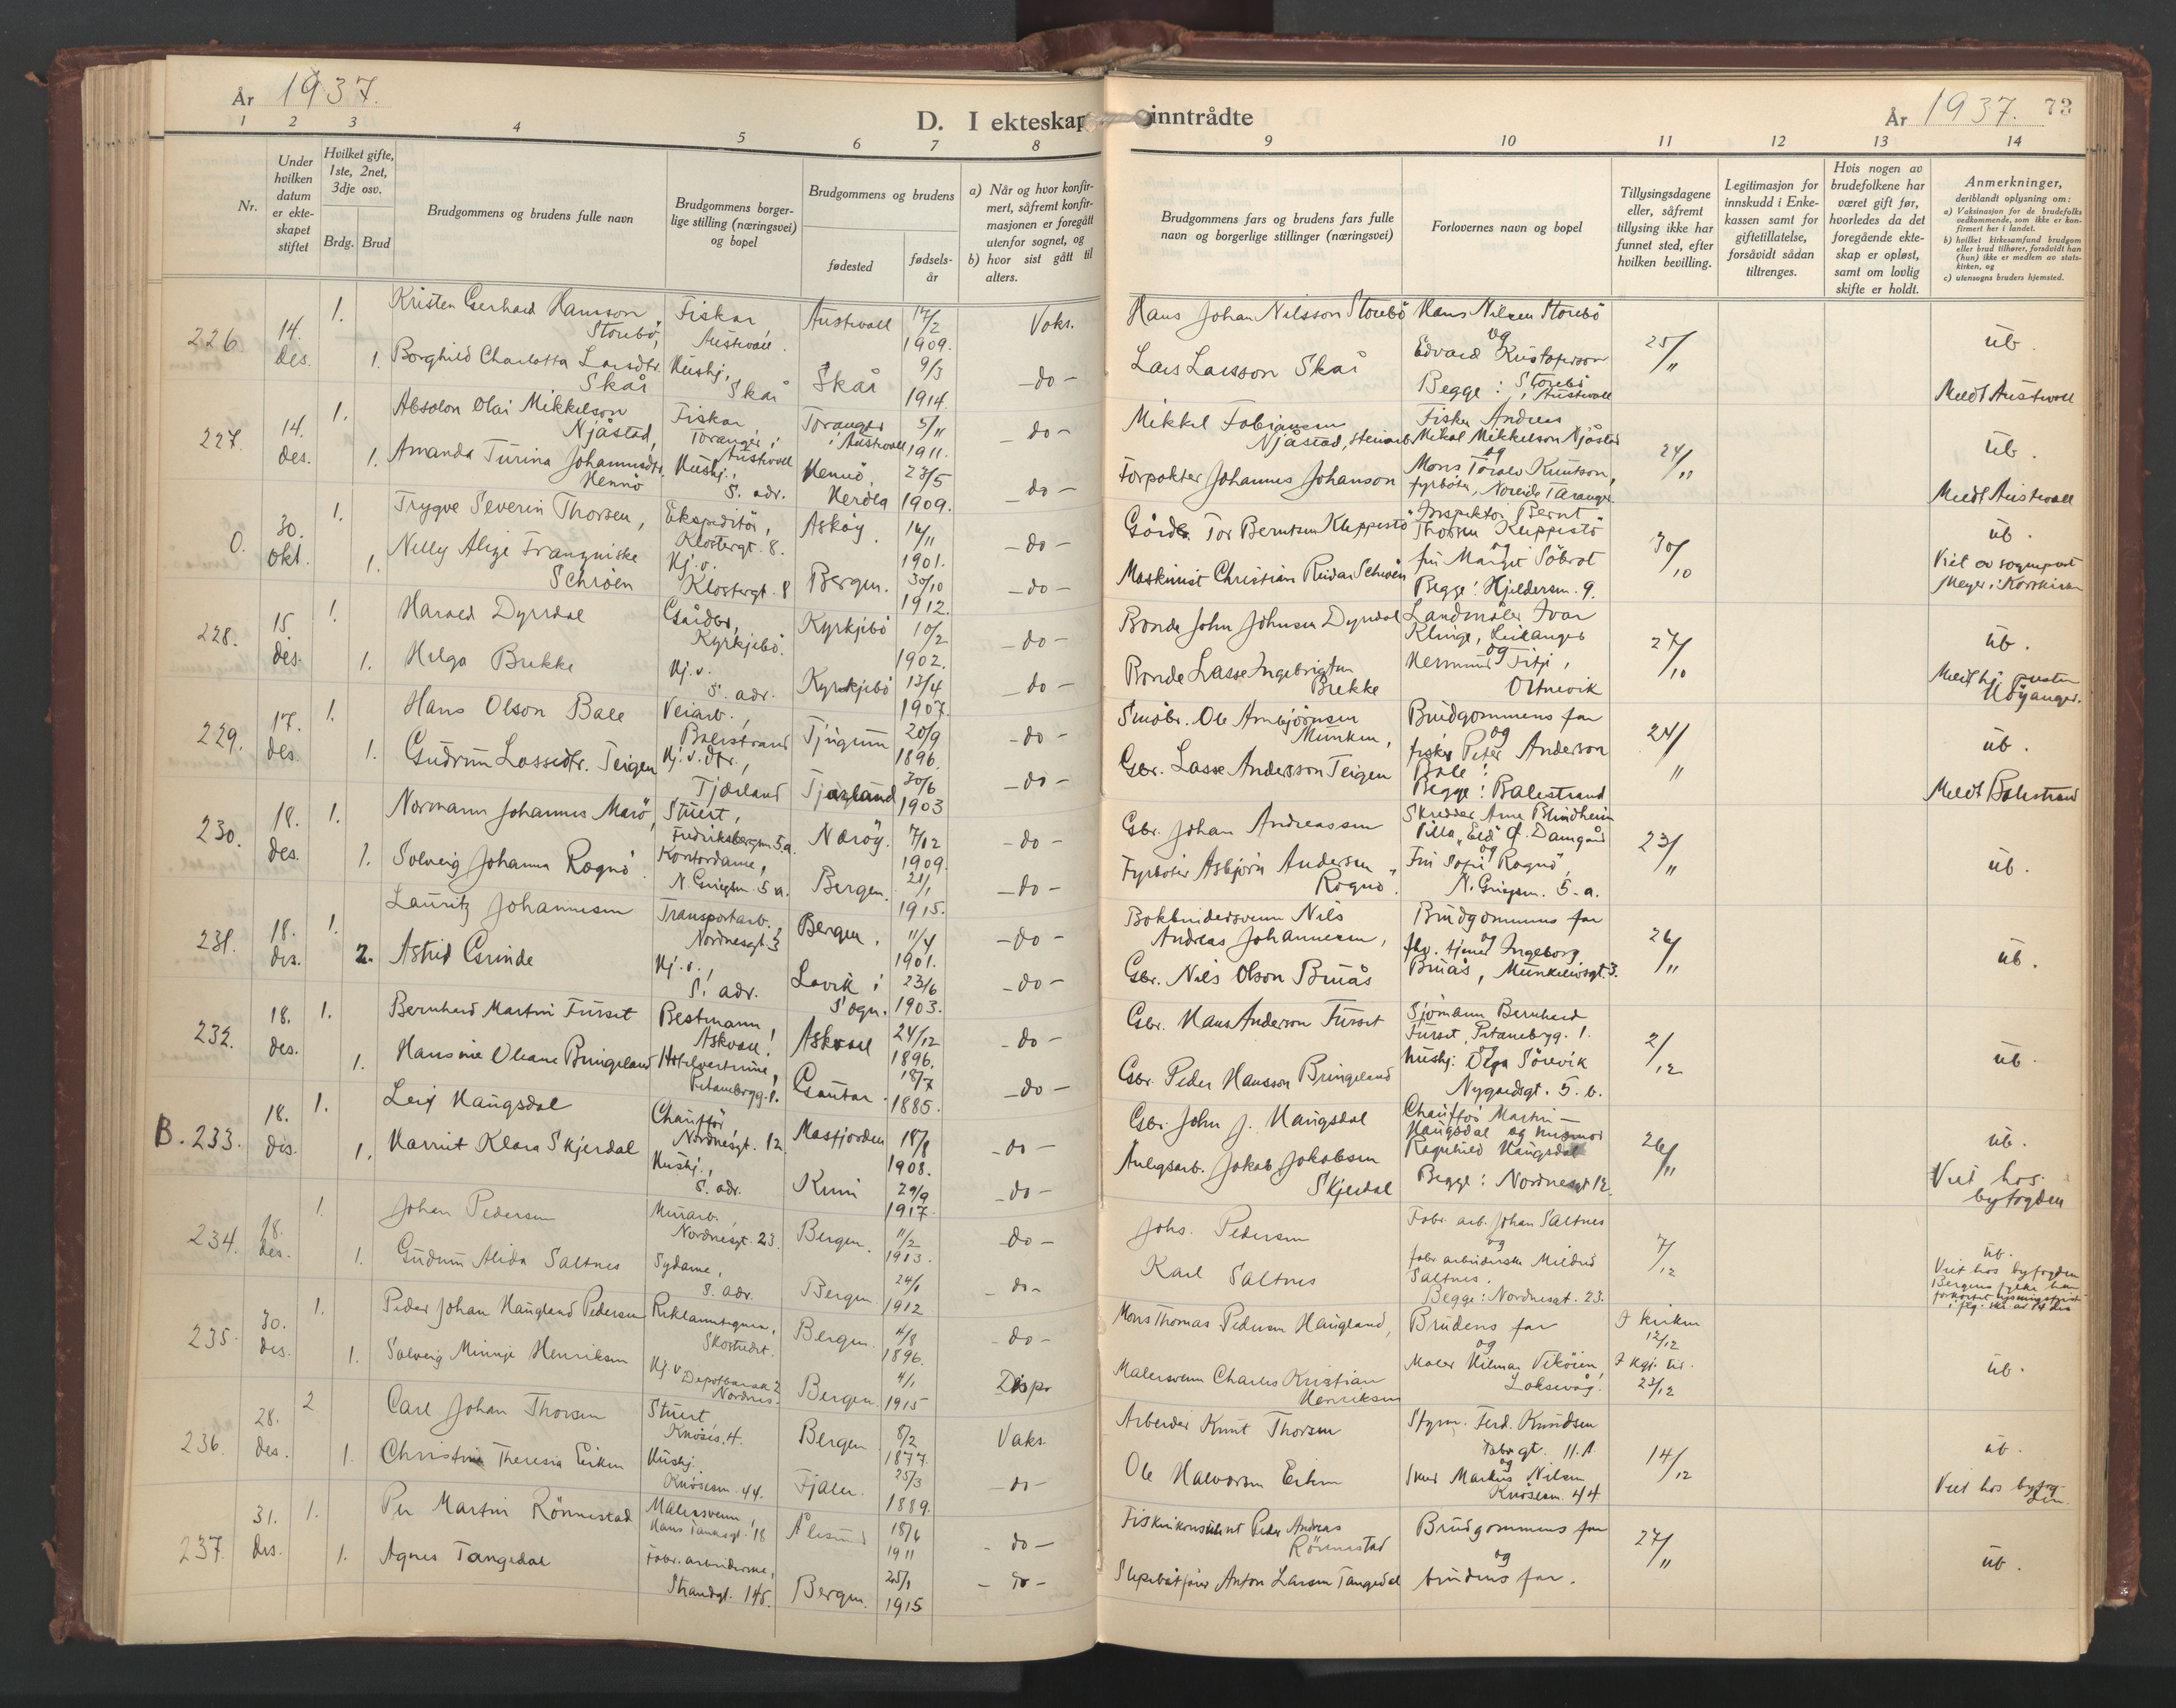 År 1937.
D. I ekteskap inntrådte
År 1937. 73
1 2 3 4 5 6 7 8 9 10 11 12 13 14
Nr.
Under hvilken datum er ekteskapet stiftet
Hvilket gifte, 1ste, 2net, 3dje osv.
Brdg. Brud
Brudgommens og brudens fulle navn
Brudgommens borgerlige stilling (næringsvei) og bopel
Brudgommens og brudens
fødested
fødselsår
a) Når og hvor konfirmert, såfremt konfirmasjonen er foregått utenfor sognet, og
b) hvor sist gått til alters.
Brudgommens fars og brudens fars fulle navn og borgerlige stillinger (næringsvei)
Forlovernes navn og bopel
Tillysingsdagene eller, såfremt tillysing ikke har funnet sted, efter hvilken bevilling.
Legitimasjon for innskudd i Enkekassen samt for giftetillatelse, forsåvidt sådan tiltrenges.
Hvis nogen av brudefolkene har været gift før, hvorledes da det foregående ekteskap er opløst, samt om lovlig skifte er holdt.
Anmerkninger, deriblandt oplysning om:
a) Vaksinasjon for de brudefolks vedkommende, som ikke er konfirmert her i landet.
b) hvilket kirkesamfund brudgom eller brud tilhører, forsåvidt han (hun) ikke er medlem av statskirken, og
c) utensogns bruders hjemsted.
226 14. des. 1. Kristen Gerhard Hansson Storebö, Fiskar, Austevoll. Austevoll 17/2 1909. Vaks. Hans Johan Nilsson Storebö Hans Nilsen Storebö og 25/11 ub.
1. Borghild Charlotta Larsdtr. Skår Hushj., Skår Skår 9/3 1914. -do- Lars Larsson Skår Edvard Kristoferson Begge: Storebö i Austevoll Meldt Austevoll
227. 14. des. 1. Absolon Olai Mikkelson Njåstad, Fiskar Toranger i Austevoll Toranger i Austevoll 5/11 1911. -do- Mikkel Fabiansen Njåstad, steinarb. Fisker Andreas Mikal Mikkelson Njåstad og 24/11 ub.
1. Amanda Turina Johannesdtr. Hennö Hushj., S. adr. Hennö, Herdla 23/5 1909. -do- Forpakter Johannes Johanson Mons Toralv Knutson, fyrböter, Nordeide Taranger. Meldt Austevoll
0. 30. okt. 1. Trygve Severin Thorsen, Ekspeditör, Klostergt. 8. Asköy. 16/11 1901. -do- Gårdbr. Tor Berntsen Kleppestö Inspektör Bernt Thorsen Kleppestö og 30/10 ub.
1. Nelly Alize Franziske Schröen Hj.v. Klostergt. 8 Bergen. 30/10 1912. -do- Maskinist Christian Reidar Schröen frk Margit Söbrot Begge: Hjeldersm. 9. Viet av sogneprest Meyer i Korskirken
228. 15. des. 1. Harald Dyrdal Gårdbr., Kyrkjebö. Kyrkjebö 10/2 1902. -do- Bonde John Johnsen Dyrdal Landmåler Ivar Klinge, Leikanger og 27/10 ub.
1. Helga Brekke Hj.v. S. adr. Kyrkjebö 13/4 1907. -do- Bonde Lasse Ingebrigtsen Brekke Hermund Titje, Ortnevik Meldt hj. presten Höyanger.
229. 17. des. 1. Hans Olson Bale Veiarb., Balestrand Tjugum 20/9 1896. -do- Småbr. Ole Arnbjörnsen Munken, Brudgommens far og 24/11 ub.
1. Gudrun Lassedtr. Teigen Hj.v. dtr., Fjærland Fjærland 30/6 1903 -do- Gbr. Lasse Anderson Teigen fisker Peter Anderson Bale! Begge: Balestrand Meldt Balestrand
230. 18. des. 1. Normann Johannes Marö, Stuert, Fredriksbergsm. 5.a. Næröy. 7/12 1909. -do- Gbr. Johan Andreassen Skredder Arne Blindheim Villa "Eld" Q. Damgård og 23/11 ub.
1. Solveig Johanna Rognö. Kontordame, N. Griegsm. 5 a. Bergen. 21/1 1915. -do- Fyrböter Asbjörn Andersen Rognö. Fru Sofie Rognö, N. Griegsm. 5. a.
231. 18. des. 1. Lauritz Johannesen Transportarb. Nordnesgt. 3 Bergen, 11/4 1901. -do- Bokbindersvenn Nils Andreas Johannesen, Brudgommens far og 26/11 ub.
2. Astrid Grinde Hj.v., S. adr. Lavik i Sogn. 23/6 1903. -do- Gbr. Nils Olson Bruås fhv. tjener Ingeborg Bruås, Munkelivsgt. 3.
232. 18. des. 1. Bernhard Martin Furset Bestmann, Askvoll. Askvoll 24/12 1896. -do- Gbr. Hans Anderson Furset Sjömann Bernhard Furset, Pitanebryg. 1. og 2/12 ub.
1. Hansine Oleane Bringeland Hotelvertinne, Pitanebryg. 1. Gaular. 18/7 1885. -do- Gbr. Peder Hansson Bringeland hushj. Olga Sörevik Nygaardsgt. 5. b.
B. 233. 18. des. 1. Leif Haugsdal Chaufför Nordnesgt. 12. Masfjorden 18/8 1908. -do- Gbr. John J. Haugsdal Chaufför Martin Haugsdal og husmor 26/11 ub.
1. Harriet Klara Skjerdal Hushj., S. adr. Kinn 29/9 1917. -do- Anlegsarb. Jakob Jakobsen Skjerdal Ragnhild Haugsdal Begge: Nordnesgt 12. Viet hos byfogden
234. 18. des. 1. Johan Pedersen Murarb., Nordnesgt. 23. Bergen. 11/2 1913. -do- Johs. Pedersen Fabr. arb. Johan Saltnes og 7/12 ub.
1. Gudrun Alida Saltnes Sydame, S. adr. Bergen. 24/1 1912 -do- Karl Saltnes fabr arbeiderske Mildrid Saltnes. Begge: Nordnesgt. 23. Viet hos byfogden Bergens fylke har forkortet lysningsfrist
235. 30. des. 1. Peder Johan Haugland Pedersen Reklametegner, Skostredet. Bergen. 4/8 1896. -do- Mons Thomas Pedersen Haugland, Brudens far og I kirken 12/12
1. Solveig Minnje Henriksen Hj.v. Nordnes. Bergen. 4/1 1915 Dispr Malersvenn Charles Kristian Henriksen Maler Hilmar Vikören, Laksevåg. 23/12 ub.
236. 28. des. 2 Carl Johan Thorsen Stuert, Knösesm. 4. Bergen. 8/2 1877. Vaks. Arbeider Knut Thorsen Styrm. Ferd. Knudsen gt. 11. A og 14/12 ub.
1. Christine Theresia Eriksen Hushj. Knösesm. 44. Fjaler. 25/3 1889. -do- Ole Halvorsen Markus Nilsen Knösesm. 44. Viet hos byfogden.
237. 31. des. 1. Per Martin Rönnestad Malersvenn, Hans Tanksgt. 18 Ålesund 18/6 1911 -do- Fiskerikonsulent Peder Andreas Rönnestad Brudgommens far og 27/11 ub.
1. Agnes Tangedal Fabr. arbeiderske, Strandgt. 145. Bergen. 25/1 1915 -do- Slepebåtförer Anton Larsen Tangedal brudens far.